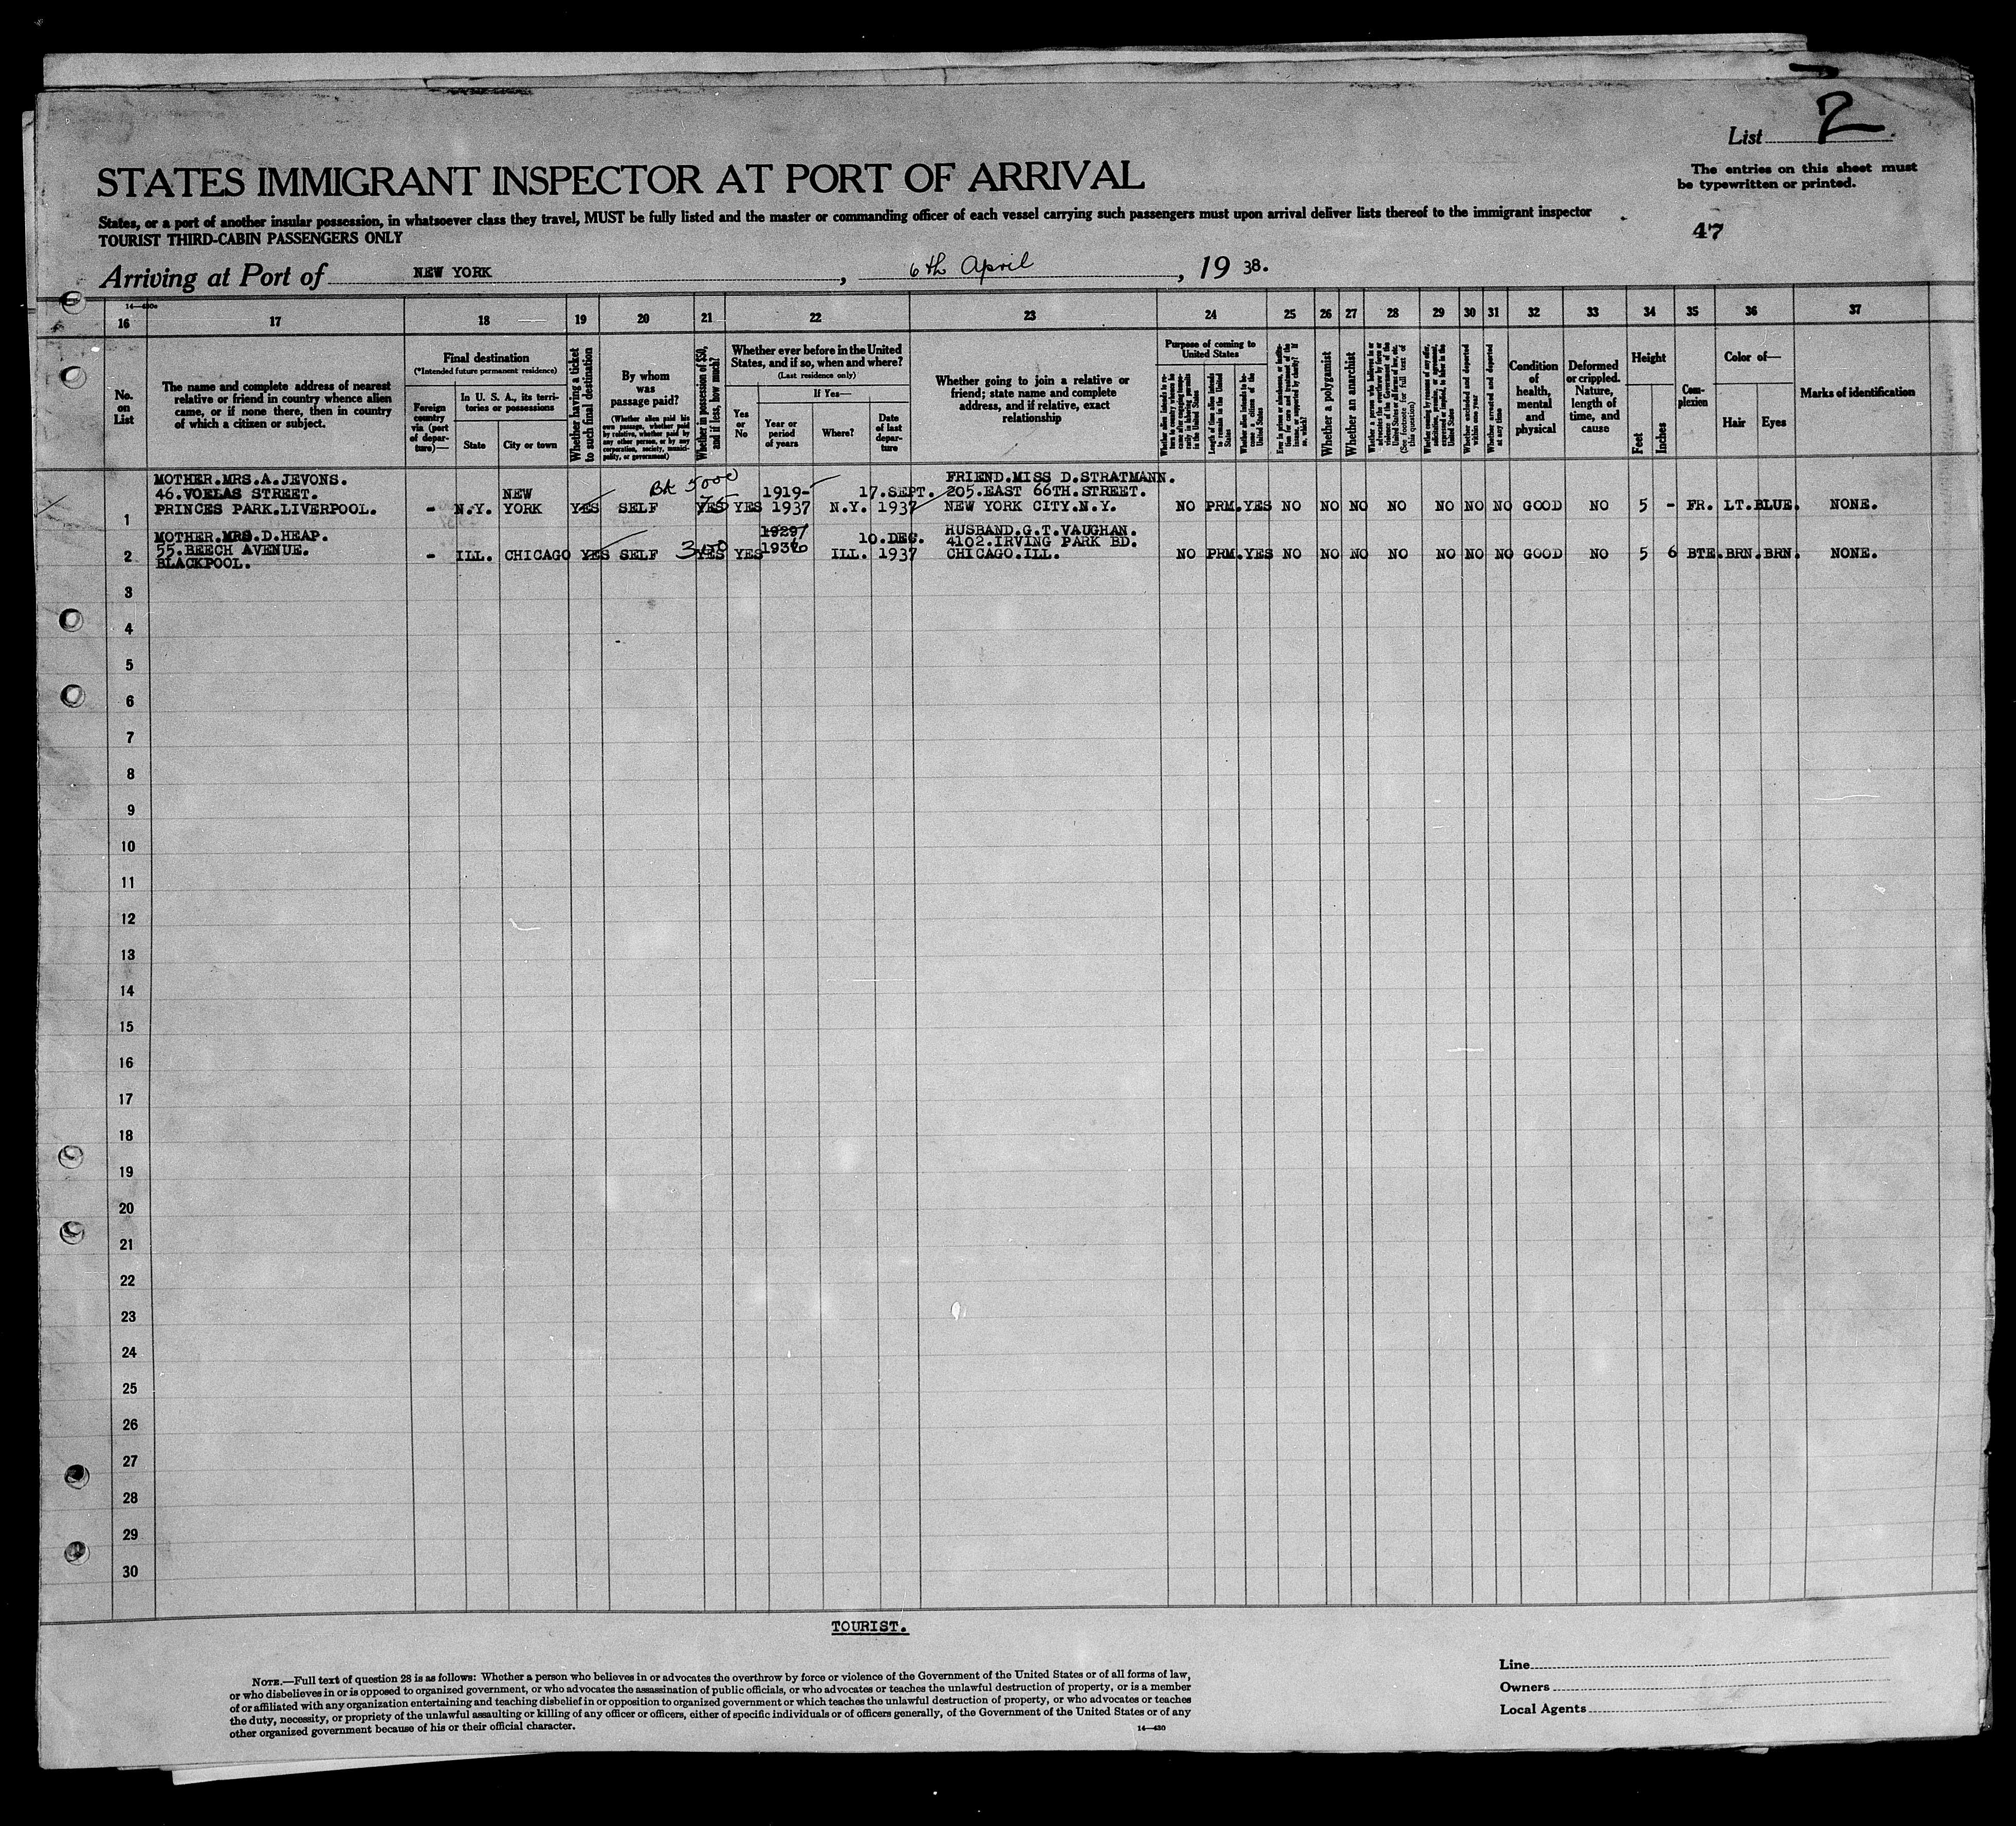 List 2
STATES IMMIGRANT INSPECTOR AT PORT OF ARRIVAL
The entries on this sheet must
be typewritten or printed.
States, or a port of another insular possession, in whatsoever class they travel, MUST be fully listed and the master or commanding officer of each vessel carrying such passengers must upon arrival deliver lists thereof to the immigrant inspector
TOURIST THIRD-CABIN PASSENGERS ONLY
47
Arriving at Port of NEW YORK, 6th April, 19 38.
16 17 18 19 20 21 22 23 24 25 26 27 28 29 30 31 32 33 34 35 36 37
No.
on
List
The name and complete address of nearest
relative or friend in country whence alien
came, or if none there, then in country
of which a citizen or subject.
Final destination
(*Intended future permanent residence)
Foreign
country
via (port
of depar-
ture)—
In U. S. A., its terri-
tories or possessions
State
City or town
Whether having a ticket
to such final destination
By whom
was
passage paid?
(Whether alien paid his
own passage, whether paid
by relative, whether paid by
any other person, or by any
corporation, society, munici-
pality, or government)
Whether in possession of $50,
and if less, how much?
Whether ever before in the United
States, and if so, when and where?
(Last residence only)
Yes
or
No
If Yes—
Year or
period
of years
Where?
Date
of last
depar-
ture
Whether going to join a relative or
friend; state name and complete
address, and if relative, exact
relationship
Purpose of coming to
United States
Whether alien intends to re-
turn to country whence he
came after engaging tempo-
rarily in laboring pursuits
in the United States
Length of time alien intends
to remain in the United
States
Whether alien intends to be-
come a citizen of the
United States
Ever in prison or almshouse, or institu-
tion for care and treatment of the
insane, or supported by charity? If
so, which?
Whether a polygamist
Whether an anarchist
Whether a person who believes in or
advocates the overthrow by force or
violence of the Government of the
United States or all forms of law, etc.
(See footnote for full text of
this question)
Whether coming by reasons of any offer,
solicitation, promise, or agreement,
expressed or implied, to labor in the
United States
Whether excluded and deported
within one year
Whether arrested and deported
at any time
Condition
of
health,
mental
and
physical
Deformed
or crippled.
Nature,
length of
time, and
cause
Height
Feet
Inches
Com-
plexion
Color of—
Hair
Eyes
Marks of identification
MOTHER.MRS.A.JEVONS. BK 5000 FRIEND.MISS D.STRATMANN.
46.VOELAS STREET. NEW 1919- 17.SEPT. 205.EAST 66TH.STREET.
1 PRINCES PARK.LIVERPOOL. - N.Y. YORK YES SELF YES 75 YES 1937 N.Y. 1937 NEW YORK CITY.N.Y. NO PRM. YES NO NO NO NO NO NO NO GOOD NO 5 - FR. LT. BLUE. NONE.
MOTHER.MRS.D.HEAP. 1929/ HUSBAND.G.T.VAUGHAN.
55.BEECH AVENUE. 1936 10.DEC. 4102.IRVING PARK BD.
2 BLACKPOOL. - ILL. CHICAGO YES SELF YES YES ILL. 1937 CHICAGO.ILL. NO PRM. YES NO NO NO NO NO NO NO GOOD NO 5 6 BTE. BRN. BRN. NONE.
3
4
5
6
7
8
9
10
11
12
13
14
15
16
17
18
19
20
21
22
23
24
25
26
27
28
29
30
TOURIST.
NOTE.—Full text of question 28 is as follows: Whether a person who believes in or advocates the overthrow by force or violence of the Government of the United States or of all forms of law,
or who disbelieves in or is opposed to organized government, or who advocates the assassination of public officials, or who advocates or teaches the unlawful destruction of property, or is a member
of or affiliated with any organization entertaining and teaching disbelief in or opposition to organized government or which teaches the unlawful destruction of property, or who advocates or teaches
the duty, necessity, or propriety of the unlawful assaulting or killing of any officer or officers, either of specific individuals or of officers generally, of the Government of the United States or of any
other organized government because of his or their official character.
14—430
Line
Owners
Local Agents